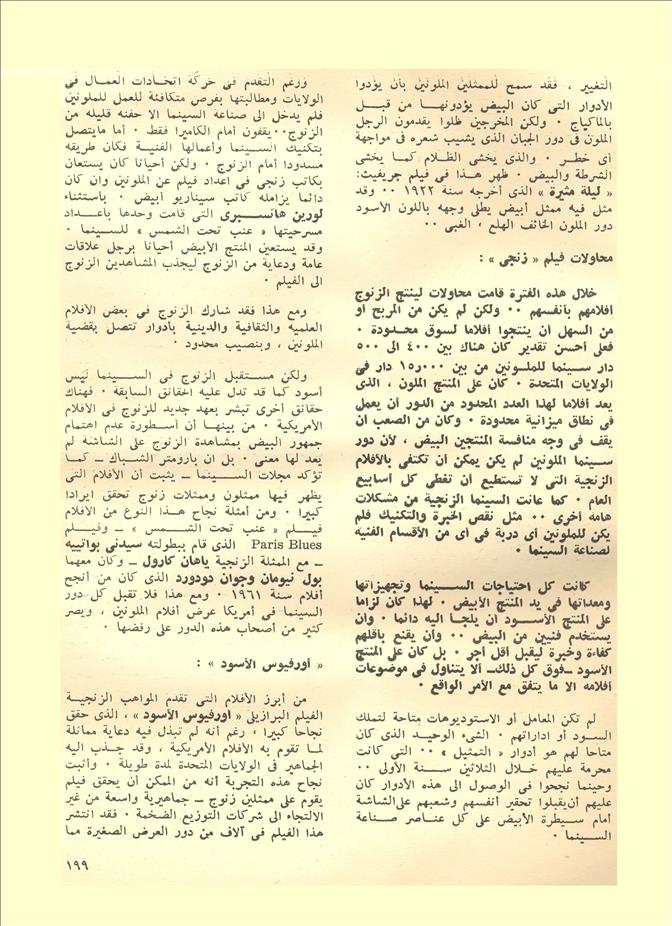 التغيير ، فقد سمح للممثلين الملونين بأن يؤدوا
الأدوار التى كان البيض يؤدونهـا من قبـل
بالماكياج ٠ ولكن المخرجين ظلوا يقدمون الرجل
الملون فى دور الجبان الذى يشيب شعره فى مواجهة
أى خطر ٠ والذى يخشى الظلام كمـا يخشى
الشرطة والبيض ٠ ظهر هـذا فى فيلم جريفيث:
« ليلة مثيرة » الذى أخرجه سنة ١٩٢٢ ٠٠ وقد
مثل فيه ممثل أبيض يطلى وجهه باللون الأسود
دور الملون الخائف الهلع ، الغبى ٠٠
محاولات فيلم « زنجى » :
خلال هذه الفترة قامت محاولات لينتج الزنوج
أفلامهم بأنفسهم ٠٠ ولكن لم يكن من المربح أو
من السهل أن ينتجوا أفلاما لسوق محـدودة ٠
فعلى أحسن تقدير كان هناك بين ٤٠٠ الى ٥٠٠
دار سـينما للملونين من بين ١٥٫٠٠٠ دار فى
الولايات المتحدة ٠ كان على المنتج الملون ، الذى
يعد أفلاما لهذا العدد المحدود من الدور أن يعمل
فى نطاق ميزانية محدودة ٠ وكان من الصعب أن
يقف فى وجه منافسة المنتجين البيض ، لأن دور
سـينما الملونين لم يكن يمكن أن تكتفى بالأفلام
الزنجية التى لا تستطيع أن تغطى كل أسابيع
العام ٠ كما عانت السينما الزنجية من مشكلات
هامه أخرى ٠٠ مثل نقص الخبرة والتكنيك فلم
يكن للملونين أى دربة فى أى من الأقسام الفنيه
لصناعة السينما ٠
كانت كل احتياجات الســينما وتجهيزاتها
ومعداتها فى يد المنتج الأبيض ٠ لهذا كان لزاما
على المنتج الأسـود ان يلجأ اليه دائما ٠ وأن
يستخدم فنيين من البيض ٠٠ وأن يقنع بأقلهم
كفاءة وخبرة ليقبل أقل أجر ٠ بل كان على المنتج
الأسود ـ فوق كل ذلك ـ ألا يتناول فى موضوعات
أفلامه الا ما يتفق مع الأمر الواقع ٠
لم تكن المعامل أو الاستوديوهات متاحة لتملك
السود أو اداراتهم ٠ الشىء الوحيـد الذى كان
متاحا لهم هو أدوار « التمثيل » ٠٠ التى كانت
محرمة عليهم خـلال الثلاثين سـنة الأولى ٠٠
وحينما نجحوا فى الوصول الى هذه الأدوار كان
عليهم أن يقبلوا تحقير أنفسهم وشعبهم على الشاشة
أمام سـيطرة الأبيض على كل عناصر صناعة
السينمـا ٠
ورغم التقدم فى حركة اتحـادات العمال فى
الولايات ومطالبتها بفرص متكافئة للعمل للملونين
فلم يدخل الى صناعة السينما الا حفنه قليله من
الزنوج٠٠يقفون أمام الكاميرا فقط ٠ أما مايتصل
بتكنيك السينما وأعمالها الفنيـة فكان طريقه
مسدودا أمام الزنوج ٠ ولكن أحيانا كان يستعان
بكاتب زنجى فى اعداد فيلم عن الملونين وان كان
دائما يزامله كاتب سيناريو أبيض ٠ باستثناء
لورين هانسـبرى التى قامت وحدها باعـداد
مسرحيتها « عنب تحت الشمس » للسـينما ٠
وقد يستعين المنتج الأبيض أحيانا برجل علاقات
عامة ودعاية من الزنوج ليجذب المشاهدين الزنوج
الى الفيلم ٠
ومع هذا فقد شارك الزنوج فى بعض الأفلام
العلميه والثقافية والدينية بأدوار تتصل بقضية
الملونين ، وبنصيب محدود ٠
ولكن مسـتقبل الزنوج فى الســينما ليس
أسود كما قد تدل عليه الحقائق السابقة ٠ فهناك
حقائق أخرى تبشر بعهد جديد للزنوج فى الأفلام
الأمريكية ٠ من بينهـا أن أسطورة عدم اهتمام
جمهور البيض بمشاهدة الزنوج على الشاشة لم
يعد لها معنى ٠ بل ان بارومتر الشبـاك ـ كمـا
تؤكد مجلات السـينما ـ يثبت أن الأفلام التى
يظهر فيها ممثلون وممثلات زنوج تحقق ايرادا
كبيرا ٠ ومن أمثلة نجاح هـذا النوع من الأفلام
فيـلم « عنب تحت الشـمس » ـ وفيـلم
Paris Blues الذى قام ببطولته سيدنى بواتييه
ـ مع الممثلة الزنجية ياهان كارول ـ وكان معهما
بول نيومان وجوان دودورد الذى كان من أنجح
أفلام سنة ١٩٦١ ٠ ومع هذا فلا تقبل كل دور
السينما فى أمريكا عرض أفلام الملونين ، ويصر
كثير من أصحاب هذه الدور على رفضها ٠
« أورفيوس الأسود » :
من أبرز الأفلام التى تقدم المواهب الزنجيـة
الفيلم البرازيلى « أورفيوس الأسود » ، الذى حقق
نجاحا كبيرا ، رغم أنه لم تبذل فيه دعاية مماثلة
لمـا تقوم به الأفلام الأمريكية ، وقد جـذب اليه
الجماهير فى الولايات المتحدة لمدة طويلة ٠ وأثبت
نجاح هذه التجربة أنه من الممكن أن يحقق فيلم
يقوم على ممثلين زنوج ـ جماهيرية واسعة من غير
الالتجاء الى شركات التوزيع الضخمة ٠ فقد انتشر
هذا الفيلم فى آلاف من دور العرض الصغيرة مما
١٩٩